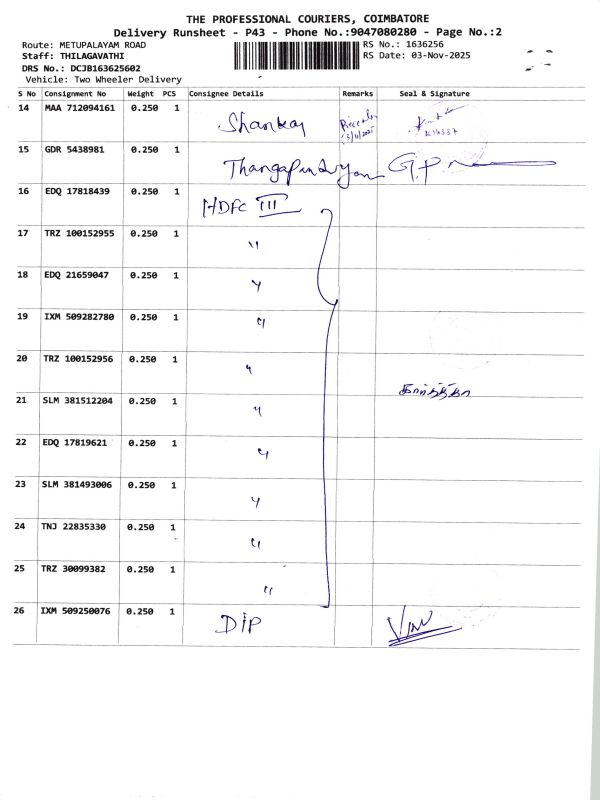 THE PROFESSIONAL COURIERS, COIMBATORE
Delivery Runsheet - P43 - Phone No.:9047080280 - Page No.:2
Route: METUPALAYAM ROAD
Staff: THILAGAVATHI
DRS No.: DCJB163625602
Vehicle: Two Wheeler Delivery
RS No.: 1636256
RS Date: 03-Nov-2025
S No Consignment No Weight PCS Consignee Details Remarks Seal & Signature
14 MAA 712094161 0.250 1 Shankar
15 GDR 5438981 0.250 1 G.P
16 EDQ 17818439 0.250 1 HDFC III
17 TRZ 100152955 0.250 1 "
18 EDQ 21659047 0.250 1 "
19 IXM 509282780 0.250 1 "
20 TRZ 100152956 0.250 1 "
21 SLM 381512204 0.250 1 "
22 EDQ 17819621 0.250 1 "
23 SLM 381493006 0.250 1 "
24 TNJ 22835330 0.250 1 "
25 TRZ 30099382 0.250 1 "
26 IXM 509250076 0.250 1 DIP